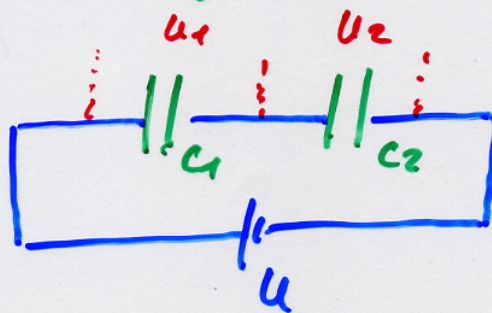 U1 U2
C1 C2
U